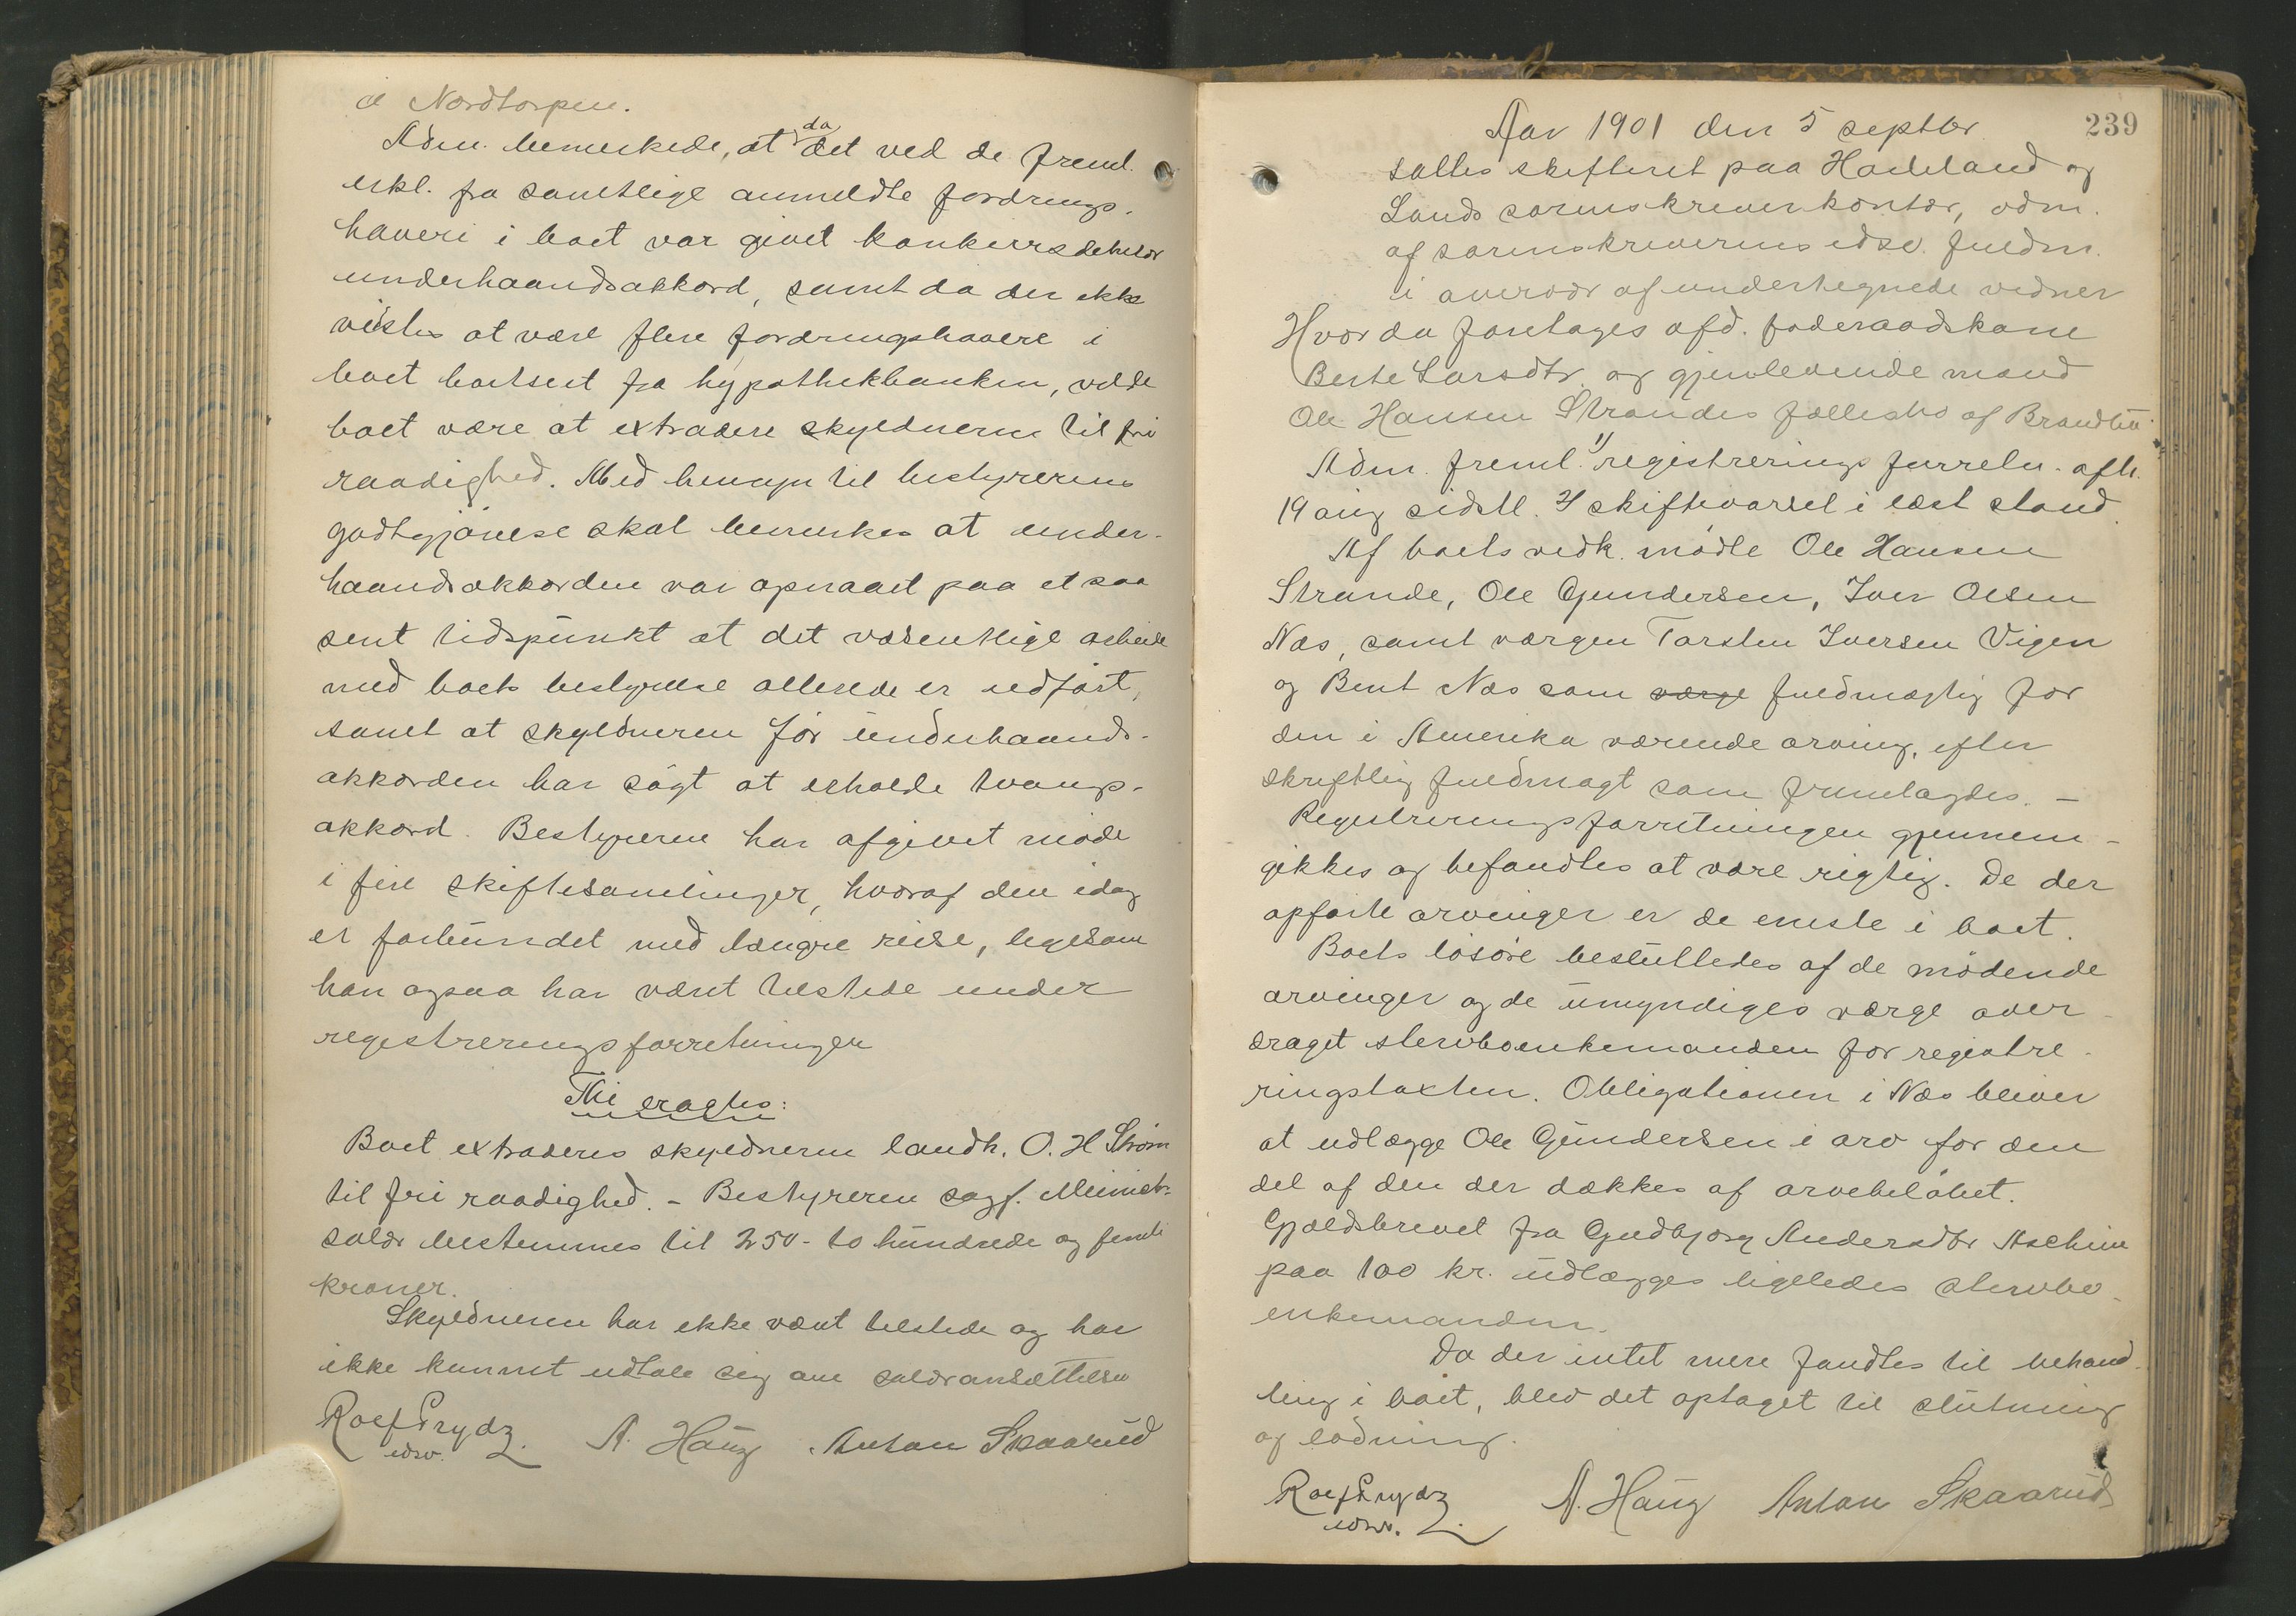 d Nordtorpen.
Adm. bemerkede, at da det ved de freml.
erkl. fra samtlige anmeldte fordrings-
havere i boet var givet konkursdebitor
underhaandsakkord, samt da der ikke
vistes at være flere fordringshavere i
boet bortseet fra hypothekbanken, vilde
boet være at extradere skyldneren til fri
raadighed. Med hensyn til bestyrerens
godtgjørelse skal bemerkes at under-
haandsakkorden var opnaaet paa et saa
sent tidspunkt at det væsentlige arbeide
med boets bestyrelse allerede er udført,
samt at skyldneren før underhaands-
akkorden har søgt at erholde tvangs-
akkord. Bestyreren har afgivet møde
i fire skiftesamlinger, hvoraf den idag
er forbundet med længre reise, ligesom
han ogsaa har været tilstede under
registreringsforretningen
Thi eragtes:
Boet extraderes skyldneren landh. O. H Strøm
til fri raadighed. - Bestyreren sagf.
salær bestemmes til 250 - to hundrede og femti
kroner.
Skyldneren har ikke været tilstede og har
ikke kunnet udtale sig om salæransættelsen
Rolf Prydz
edsv. A. Haug Anton Skaarud
239
Aar 1901 den 5 septbr
sattes skifteret paa Hadeland og
Lands sorenskriverkontor, adm.
af sorenskriverens edsv. fuldm.
i overvær af undertegnede vidner
Hvor da foretages afd. føderaadskone
Berte Larsdtr. og gjenlevende mand
Ole Hansen Strandes fællesbo af Brandbu.
Adm. freml. 1) registrerings forretn. afh.
19 aug sidstl. 2) skiftevarsel i læst stand.
Af boets vedk. mødte Ole Hansen
Strande, Ole Gundersen, Iver Olsen
Næs, samt værgen Torsten Iversen Vigen
og Bent Næs som værge fuldmægtig for
den i Amerika værende arving, efter
skriftlig fuldmagt som fremlagdes. -
Registreringsforretningen gjennem-
gikkes og befandtes at være rigtig. De der
opførte arvinger er de eneste i boet.
Boets løsøre besluttedes af de mødende
arvinger og de umyndiges værge over-
draget stervboenkemanden for registre-
ringstaxten. Obligationen i Næs bliver
at udlægge Ole Gundersen i arv for den
del af den der dækkes af arvebeløbet.
Gjældsbrevet fra Gudbjørg Andersdtr Aschim
paa 100 kr. udlægges ligeledes stervbo-
enkemanden.
Da der intet mere fandtes til behand-
ling i boet, blev det optaget til slutning
og lodning.
Rolf Prydz
edsv. A. Haug Anton Skaarud